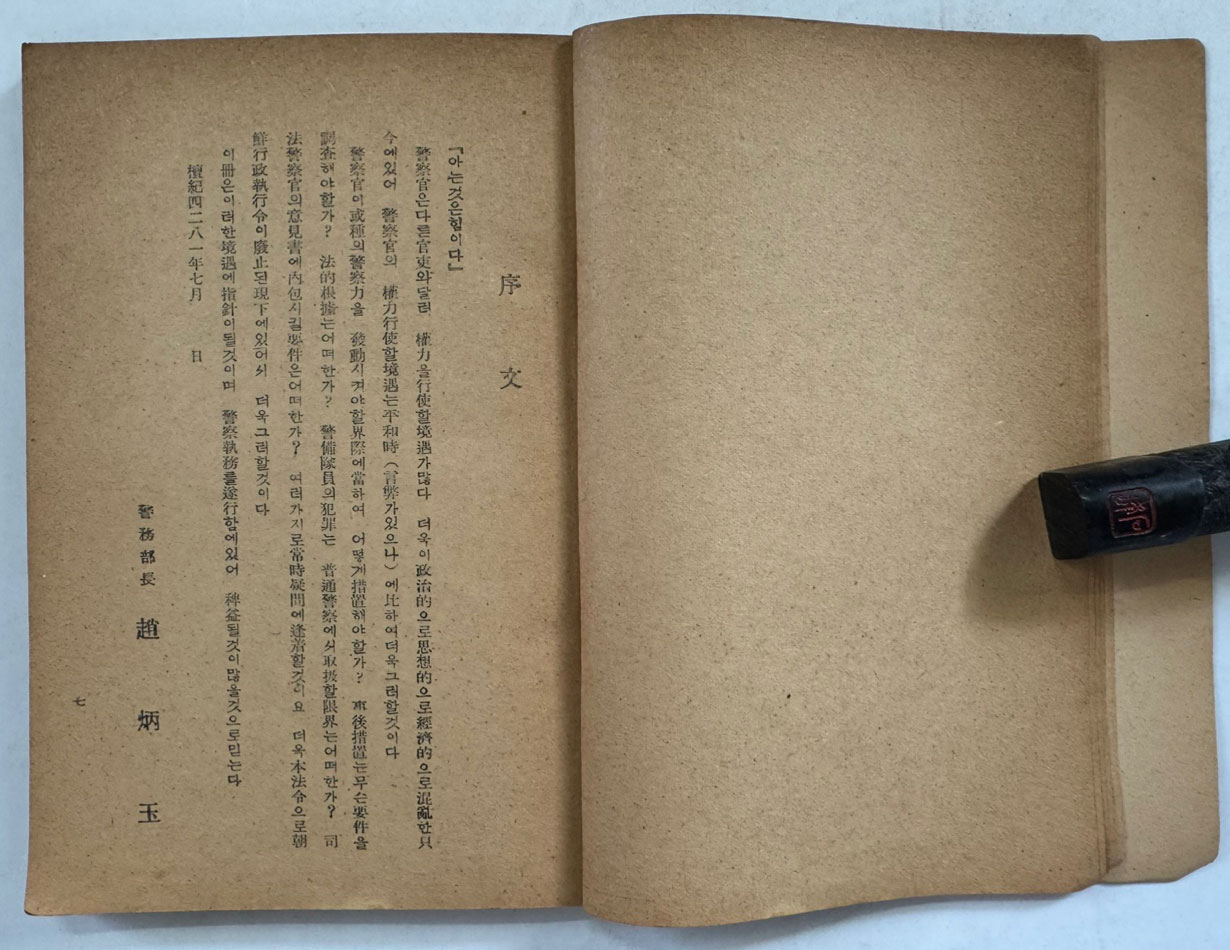 序文
『아는것은힘이다』
警察官은다른官吏와달러 權力을行使할境遇가많다 더욱이政治的으로思想的으로經濟的으로混亂한只
今에있어 警察官의 權力行使할境遇는平和時(言弊가있으나)에比하여더욱그러할것이다
警察官이或種의警察力을 發動시겨야할界際에當하여 어떻게措置해야할가? 事後措置는무슨要件을
調査해야할가? 法的根據는어떠한가? 警備隊員의犯罪는 普通警察에서取扱할限界는어떠한가? 司
法警察官의意見書에內包시킬要件은어떠한가? 여러가지로常時疑問에逢着할것이요 더욱本法令으로朝
鮮行政執行令이廢止된現下에있어서 더욱그러할것이다
이冊은이러한境遇에指針이될것이며 警察執務를遂行함에있어 裨益될것이많을것으로믿는다
檀紀四二八一年七月 日
警務部長 趙炳玉
七